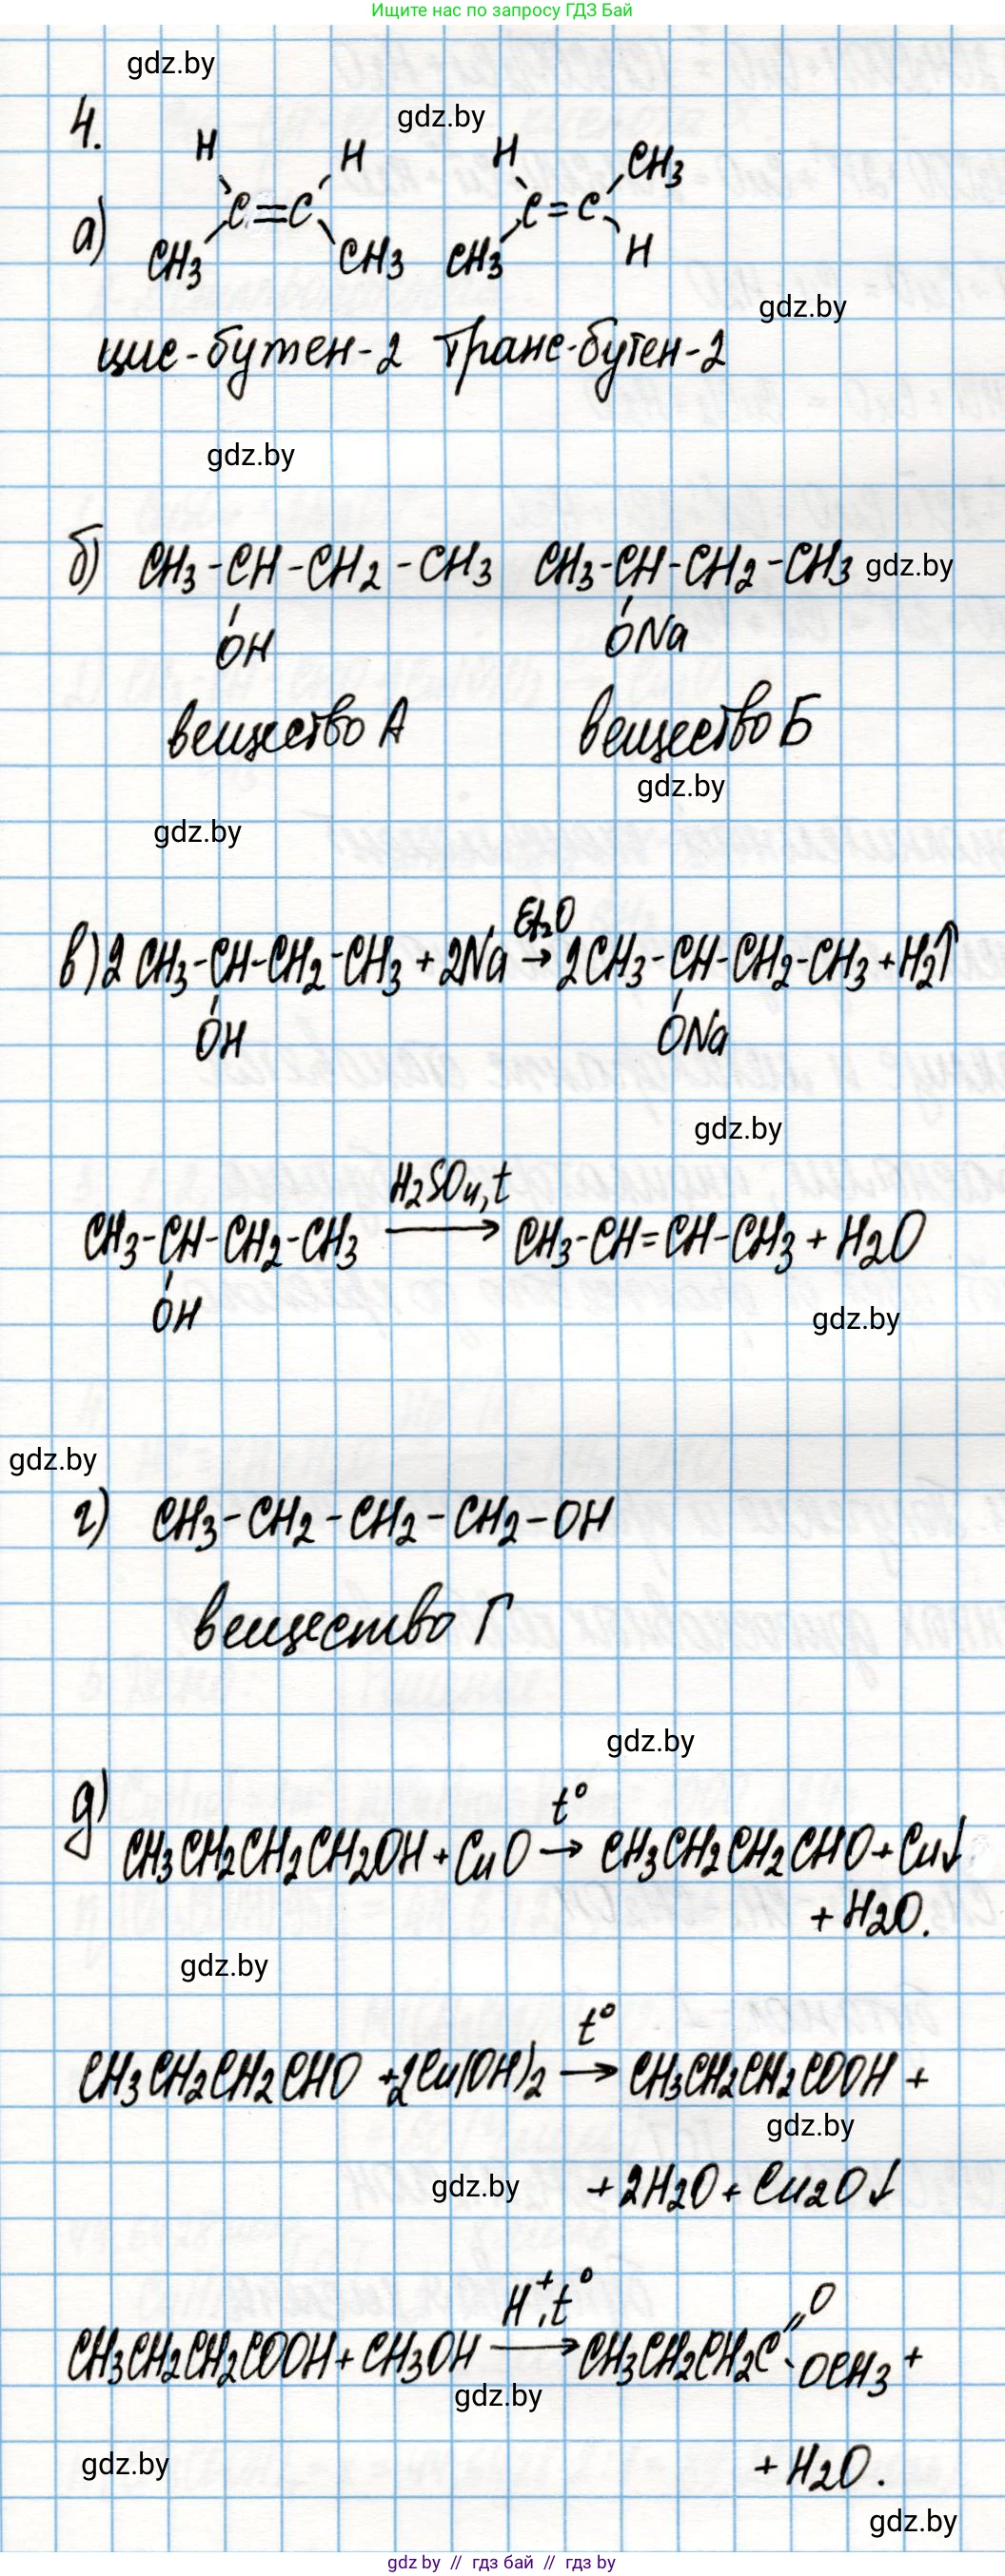 Ищите нас по запросу ГДЗ Бай
gdz.by
4.
gdz.by
H H H CH3
а) C=C C=C
CH3 CH3 CH3 H
gdz.by
цис-бутен-2 транс-бутен-2
gdz.by
б) CH3-CH-CH2-CH3 CH3-CH-CH2-CH3 gdz.by
OH ONa
вещество А вещество Б
gdz.by
gdz.by
Et2O
в) 2CH3-CH-CH2-CH3 + 2Na → 2CH3-CH-CH2-CH3 + H2↑
OH ONa
gdz.by
H2SO4, t
CH3-CH-CH2-CH3 → CH3-CH=CH-CH3 + H2O
OH
gdz.by
gdz.by
г) CH3-CH2-CH2-CH2-OH
вещество Г
gdz.by
д) t°
CH3CH2CH2CH2OH + CuO → CH3CH2CH2CHO + Cu↓
+ H2O.
gdz.by
t°
CH3CH2CH2CHO + 2Cu(OH)2 → CH3CH2CH2COOH +
gdz.by
gdz.by + 2H2O + Cu2O↓
H+, t°
O
CH3CH2CH2COOH + CH3OH → CH3CH2CH2C OCH3 +
gdz.by
gdz.by
+ H2O.
gdz.by
gdz by // гдз бай // гдз by